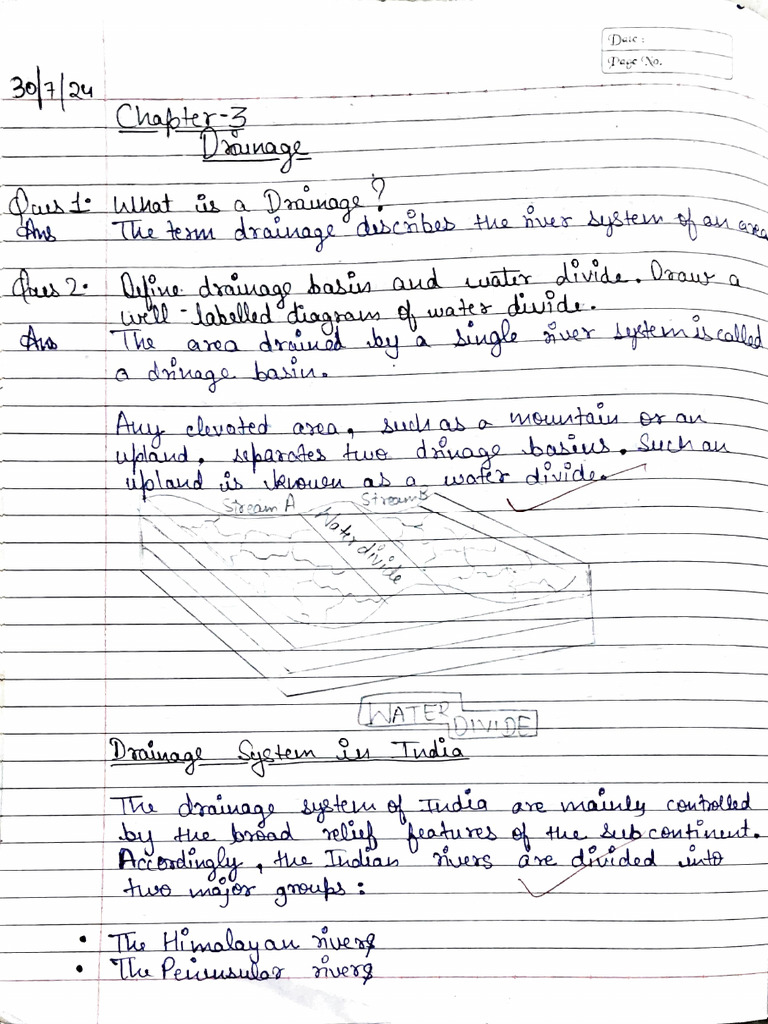 Date :
Page No.
30/7/24
Chapter-3
Drainage
Ques 1: What is a Drainage?
Ans The term drainage describes the river system of an area
Ques 2: Define drainage basin and water divide. Draw a
well-labelled diagram of water divide.
Ans The area drained by a single river system is called
a drinage basin.
Any elevated area, such as a mountain or an
upland, separates two drinage basins. Such an
upland is known as a water divide.
Stream A Stream B
Water divide
WATER DIVIDE
Drainage System in India
The drainage system of India are mainly controlled
by the broad relief features of the subcontinent.
Accordingly, the Indian rivers are divided into
two major groups:
• The Himalayan rivers
• The Peninsular rivers